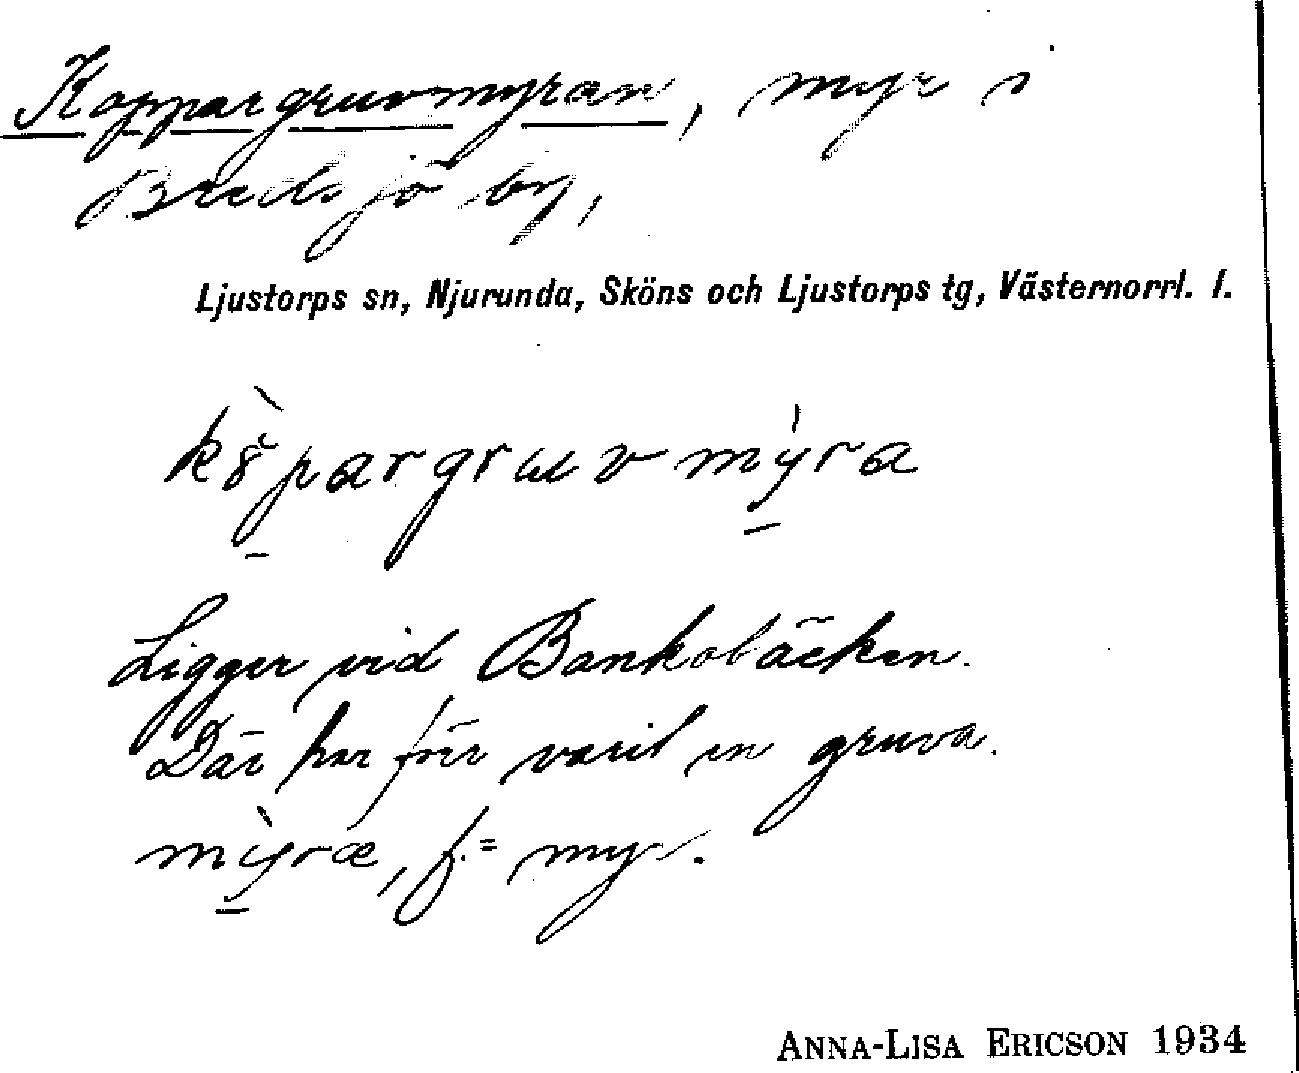 Koppargruvmyran, myr i
Bredsjö by,
Ljustorps sn, Njurunda, Sköns och Ljustorps tg, Västernorrl. l.
kòpargruvmýra
Ligger vid Bankobäcken.
Där har förr varit en gruva.
mỳræ, f. = myr.
ANNA-LISA ERICSON 1934